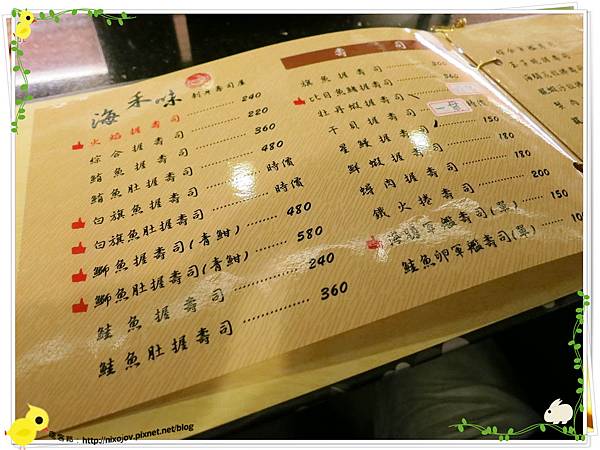 海禾味 刺身壽司屋
火焰握壽司 240
綜合握壽司 220
鮪魚握壽司 360
鮪魚肚握壽司 480
白旗魚握壽司 時價
白旗魚肚握壽司 時價
鰤魚握壽司(青魽) 480
鰤魚肚握壽司(青魽) 580
鮭魚握壽司 240
鮭魚肚握壽司 360
壽司
旗魚握壽司
比目魚鰭握壽司 300
牡丹蝦握壽司 360
干貝握壽司 一貫 時價
星鰻握壽司 150
鮮蝦握壽司 180
蟳肉握壽司 180
鐵火捲壽司 200
海膽軍艦壽司(單) 150
鮭魚卵軍艦壽司(單)
痞客邦：http://nixojov.pixnet.net/blog